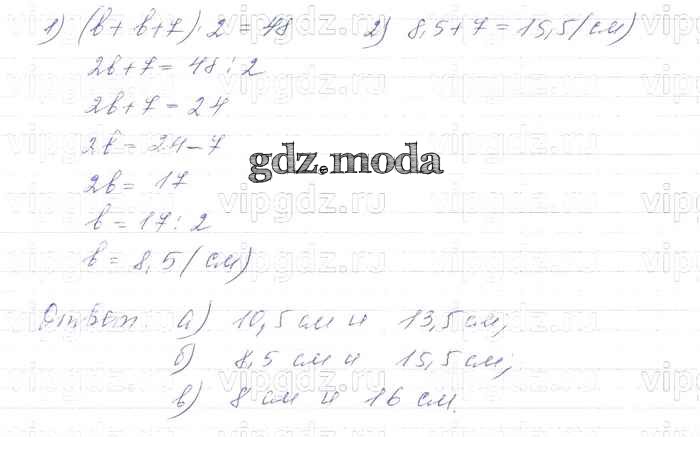 1) (b + b+7) · 2 = 48
2b+7 = 48 : 2
2b+7 = 24
2b = 24-7
2b = 17
b = 17 : 2
b = 8,5 (см)
2) 8,5+7 = 15,5 (см)
gdz.moda
Ответ а) 10,5 см и 13,5 см;
б) 8,5 см и 15,5 см;
в) 8 см и 16 см.
vipgdz.ru